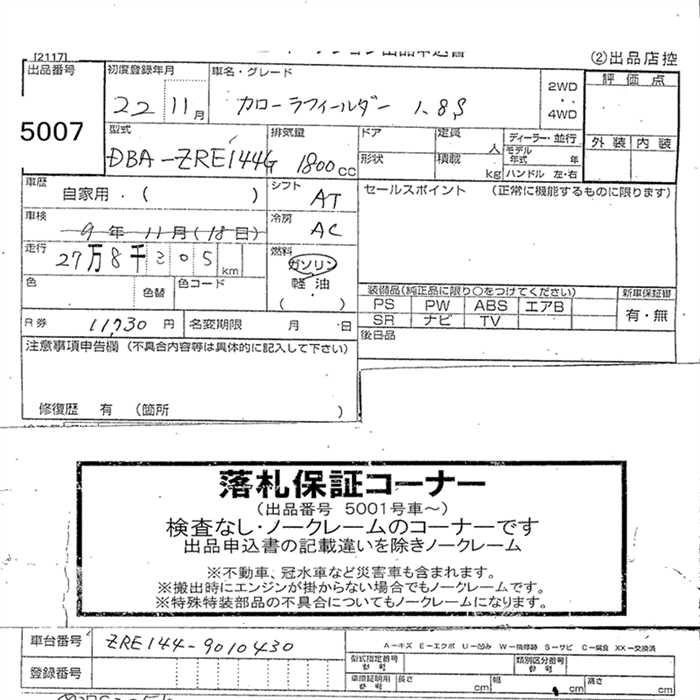 [2117]
②出品店控
出品番号
5007
初度登録年月
22 11月
車名・グレード
カローラフィールダー 1.8S
2WD
・・
4WD
評価点
外装 内装
型式
DBA-ZRE144G
排気量
1800cc
ドア
定員
人
ディーラー・並行
形状
積載
kg
モデル年式 年
ハンドル 左・右
車歴
自家用・( )
シフト
AT
セールスポイント (正常に機能するものに限ります)
車検
9年11月(18日)
冷房
AC
走行
27万8千305km
燃料
ガソリン
軽油
( )
色
色替
色コード
装備品(純正品に限り○をつけてください)
PS PW ABS エアB
SR ナビ TV
新車保証書
有・無
R券 11730円
名変期限 月 日
後日品
注意事項申告欄 (不具合内容等は具体的に記入して下さい)
修復歴 有 (箇所 )
落札保証コーナー
(出品番号 5001号車~)
検査なし・ノークレームのコーナーです
出品申込書の記載違いを除きノークレーム
※不動車、冠水車など災害車も含まれます。
※搬出時にエンジンが掛からない場合でもノークレームです。
※特殊特装部品の不具合についてもノークレームになります。
車台番号 ZRE144-9010430
A-キズ E-エクボ U-凹み W-補修跡 S-サビ C-腐食 XX-交換済
型式指定番号
類別区分番号
登録番号
車庫証明用参考
長さ cm 幅 cm 高さ cm